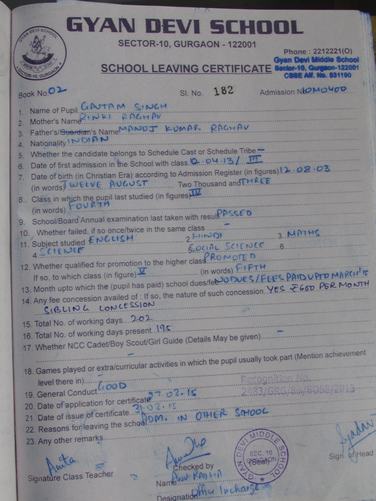 GYAN DEVI SCHOOL
SECTOR-10, GURGAON - 122001
Phone : 2212221(O)
Gyan Devi Middle School
Sector-10, Gurgaon-122001
CBSE Aff. No. 531190
SCHOOL LEAVING CERTIFICATE
Book No. 02 Sl. No. 182 Admission No
1. Name of Pupil GAUTAM SINGH
2. Mother's Name RINKI RAGHAV
3. Father's/Guardian's Name MANOJ KUMAR RAGHAV
4. Nationality INDIAN
5. Whether the candidate belongs to Schedule Cast or Schedule Tribe –
6. Date of first admission in the School with class 12.04.13/ III
7. Date of birth (in Christian Era) according to Admission Register (in figures) 12.08.03
(in words) TWELVE AUGUST Two Thousand and THREE
8. Class in which the pupil last studied (in figures) IV
(in words) FOURTH
9. School/Board Annual examination last taken with result PASSED
10. Whether failed, if so once/twice in the same class –
11. Subject studied 1. ENGLISH 2. HINDI 3. MATHS
4. SCIENCE SOCIAL SCIENCE 6.
12. Whether qualified for promotion to the higher class PROMOTED
If so, to which class (in figure) V (in words) FIFTH
13. Month upto which the (pupil has paid) school dues NO DUES/FEES PAID UPTO MARCH'15
14. Any fee concession availed of : If so, the nature of such concession. YES ₹ 650 PER MONTH
SIBLING CONCESSION
15. Total No. of working days. 202
16. Total No. of working days present 195
17. Whether NCC Cadet/Boy Scout/Girl Guide (Details May be given) –
18. Games played or extra/curricular activities in which the pupil usually took part (Mention achievement
level there in) –
19. General Conduct GOOD
Recognition No.
20. Date of application for certificate
21. Date of issue of certificate
22. Reasons for leaving the school ADM. IN OTHER SCHOOL
23. Any other remarks
Anita
Signature Class Teacher
Checked by
Name
Designation Office Incharge
GYAN DEVI MIDDLE SCHOOL
SEC. 10
(Seal)
Head